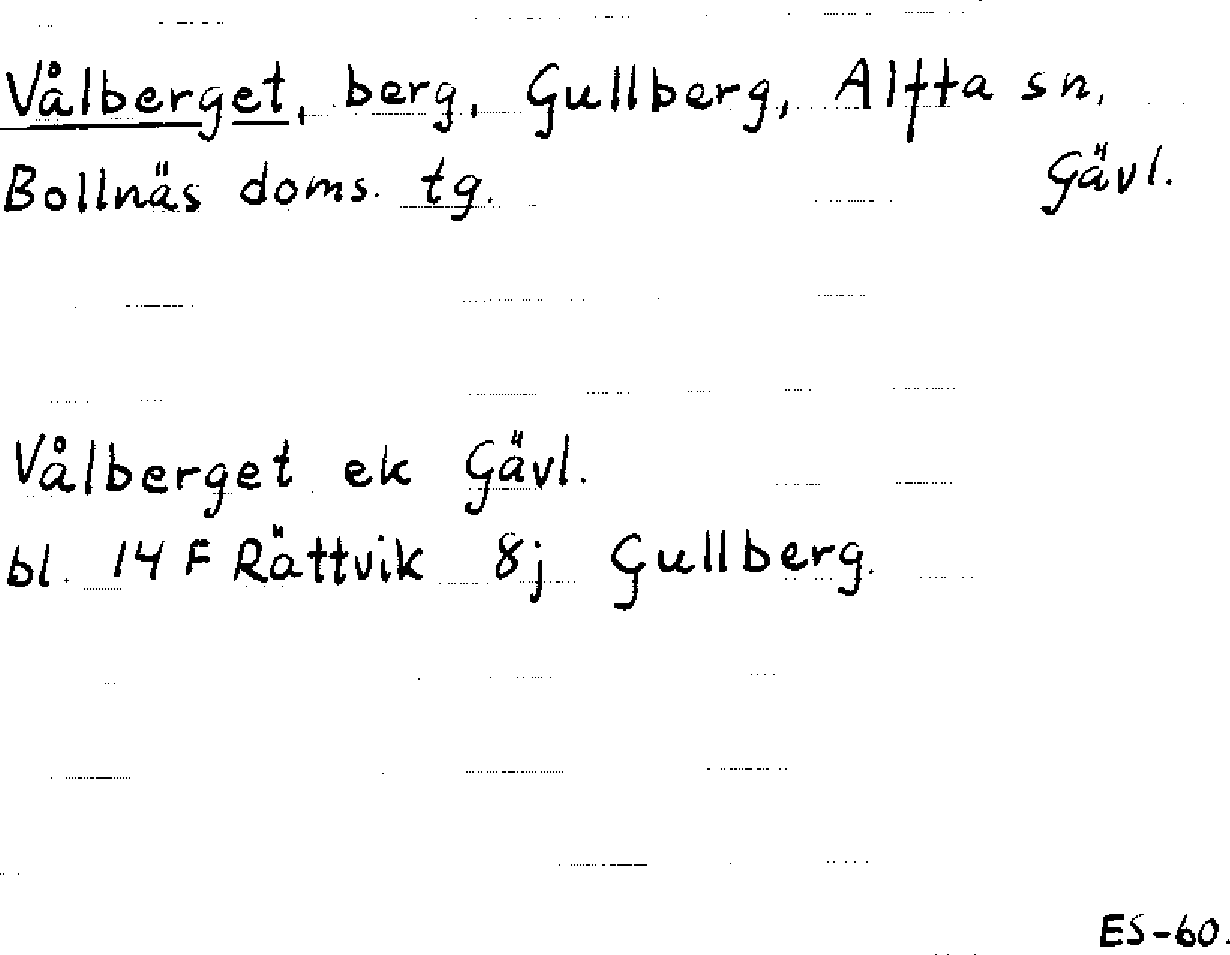 Vålberget, berg, Gullberg, Alfta sn,
Bollnäs doms. tg. Gävl.
Vålberget ek Gävl.
bl. 14 F Rättvik 8j Gullberg.
ES-60.